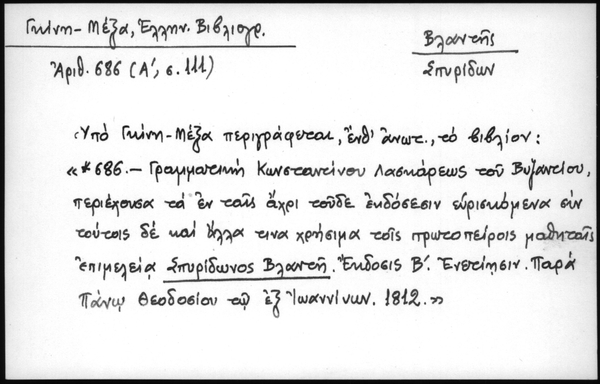 Γκίνη-Μέξα, Ἑλλην. Βιβλιογρ.
Ἀριθ. 686 (Α΄, σ. 111)
Βλαντῆς
Σπυρίδων
Ὑπό Γκίνη-Μέξα περιγράφεται, ἔνθ' ἀνωτ., τό βιβλίον:
«*686.- Γραμματική Κωνσταντίνου Λασκάρεως τοῦ Βυζαντίου,
περιέχουσα τά ἐν ταῖς ἄχρι τοῦδε ἐκδόσεσιν εὑρισκόμενα σύν
τούτοις δέ καί ἄλλα τινα χρήσιμα τοῖς πρωτοπείροις μαθηταῖς
ἐπιμελείᾳ Σπυρίδωνος Βλαντῆ. Ἔκδοσις Β΄. Ἐνετίησιν. Παρά
Πάνῳ Θεοδοσίου τῷ ἐξ Ἰωαννίνων. 1812.»